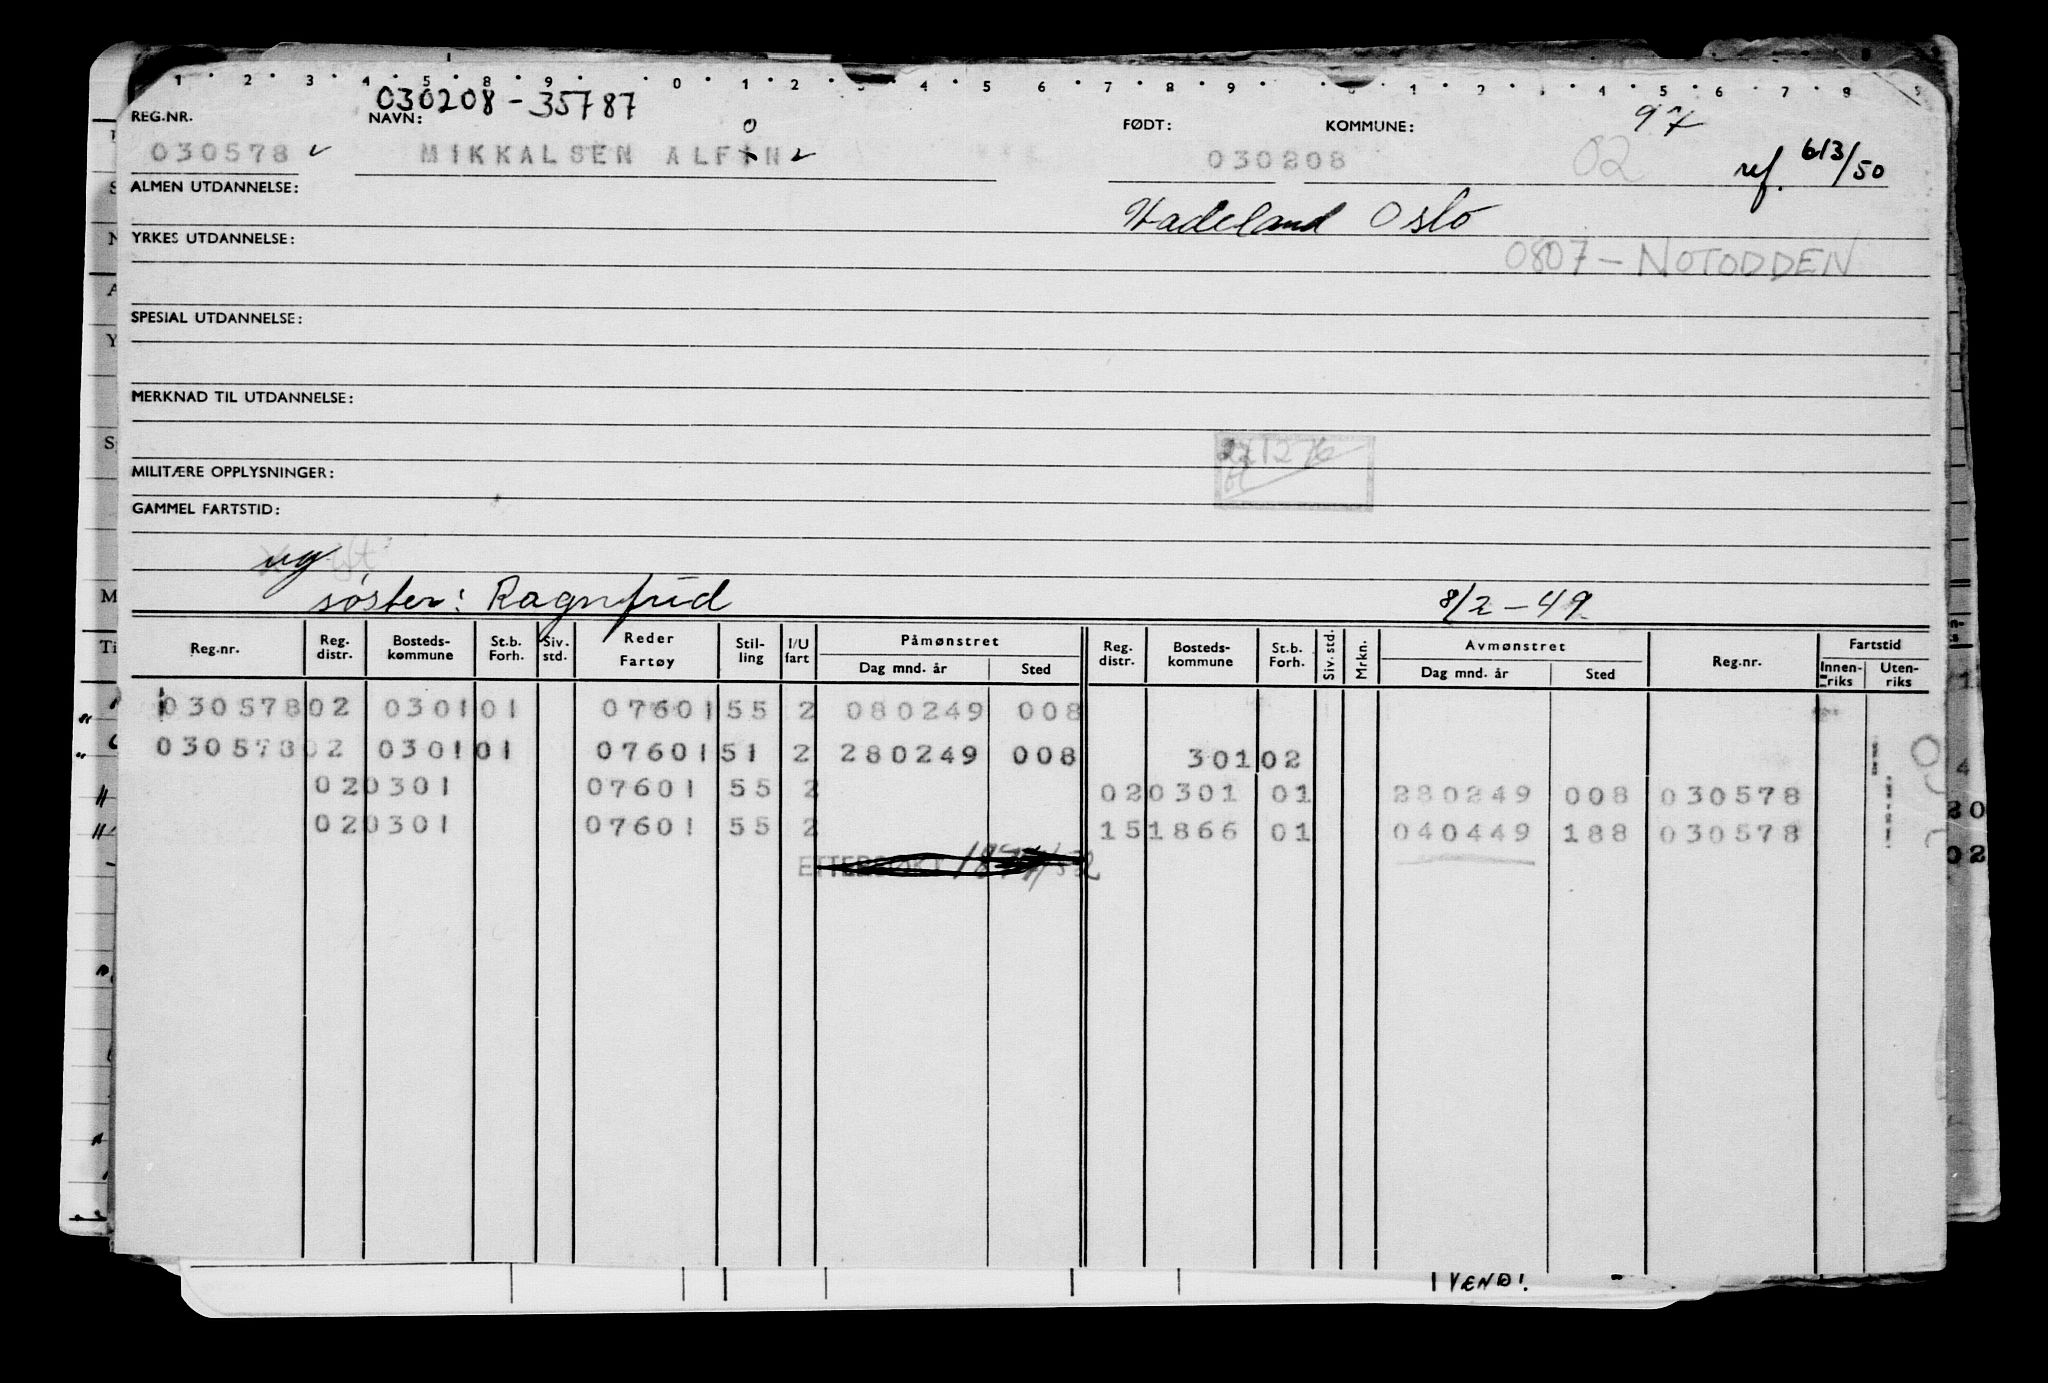 1 2 3 4 5 8 9 0 1 2 3 4 5 6 7 8 9 0 1 2 3 4 5 6 7 8 9
030208-35787
REG.NR. NAVN: FØDT: KOMMUNE: 97
030578 MIKKALSEN ALFIN 030208 02 ref. 613/50
o
ALMEN UTDANNELSE:
Hadeland Oslo
YRKES UTDANNELSE:
0807 - NOTODDEN
SPESIAL UTDANNELSE:
MERKNAD TIL UTDANNELSE:
MILITÆRE OPPLYSNINGER:
GAMMEL FARTSTID:
ug
søster: Ragnfrid 8/2-49.
Reg.nr. Reg. distr. Bosteds-kommune St.b. Forh. Siv. std. Reder Fartøy Stil-ling I/U fart Påmønstret Dag mnd. år Sted Reg. distr. Bosteds-kommune St.b. Forh. Siv. std. Mrkn. Avmønstret Dag mnd. år Sted Reg.nr. Fartstid Innen-riks Uten-riks
030578 02 0301 01 07601 55 2 080249 008
030578 02 0301 01 07601 51 2 280249 008 301 02
02 0301 07601 55 2 02 0301 01 280249 008 030578
02 0301 07601 55 2 15 1866 01 040449 188 030578
VEND!